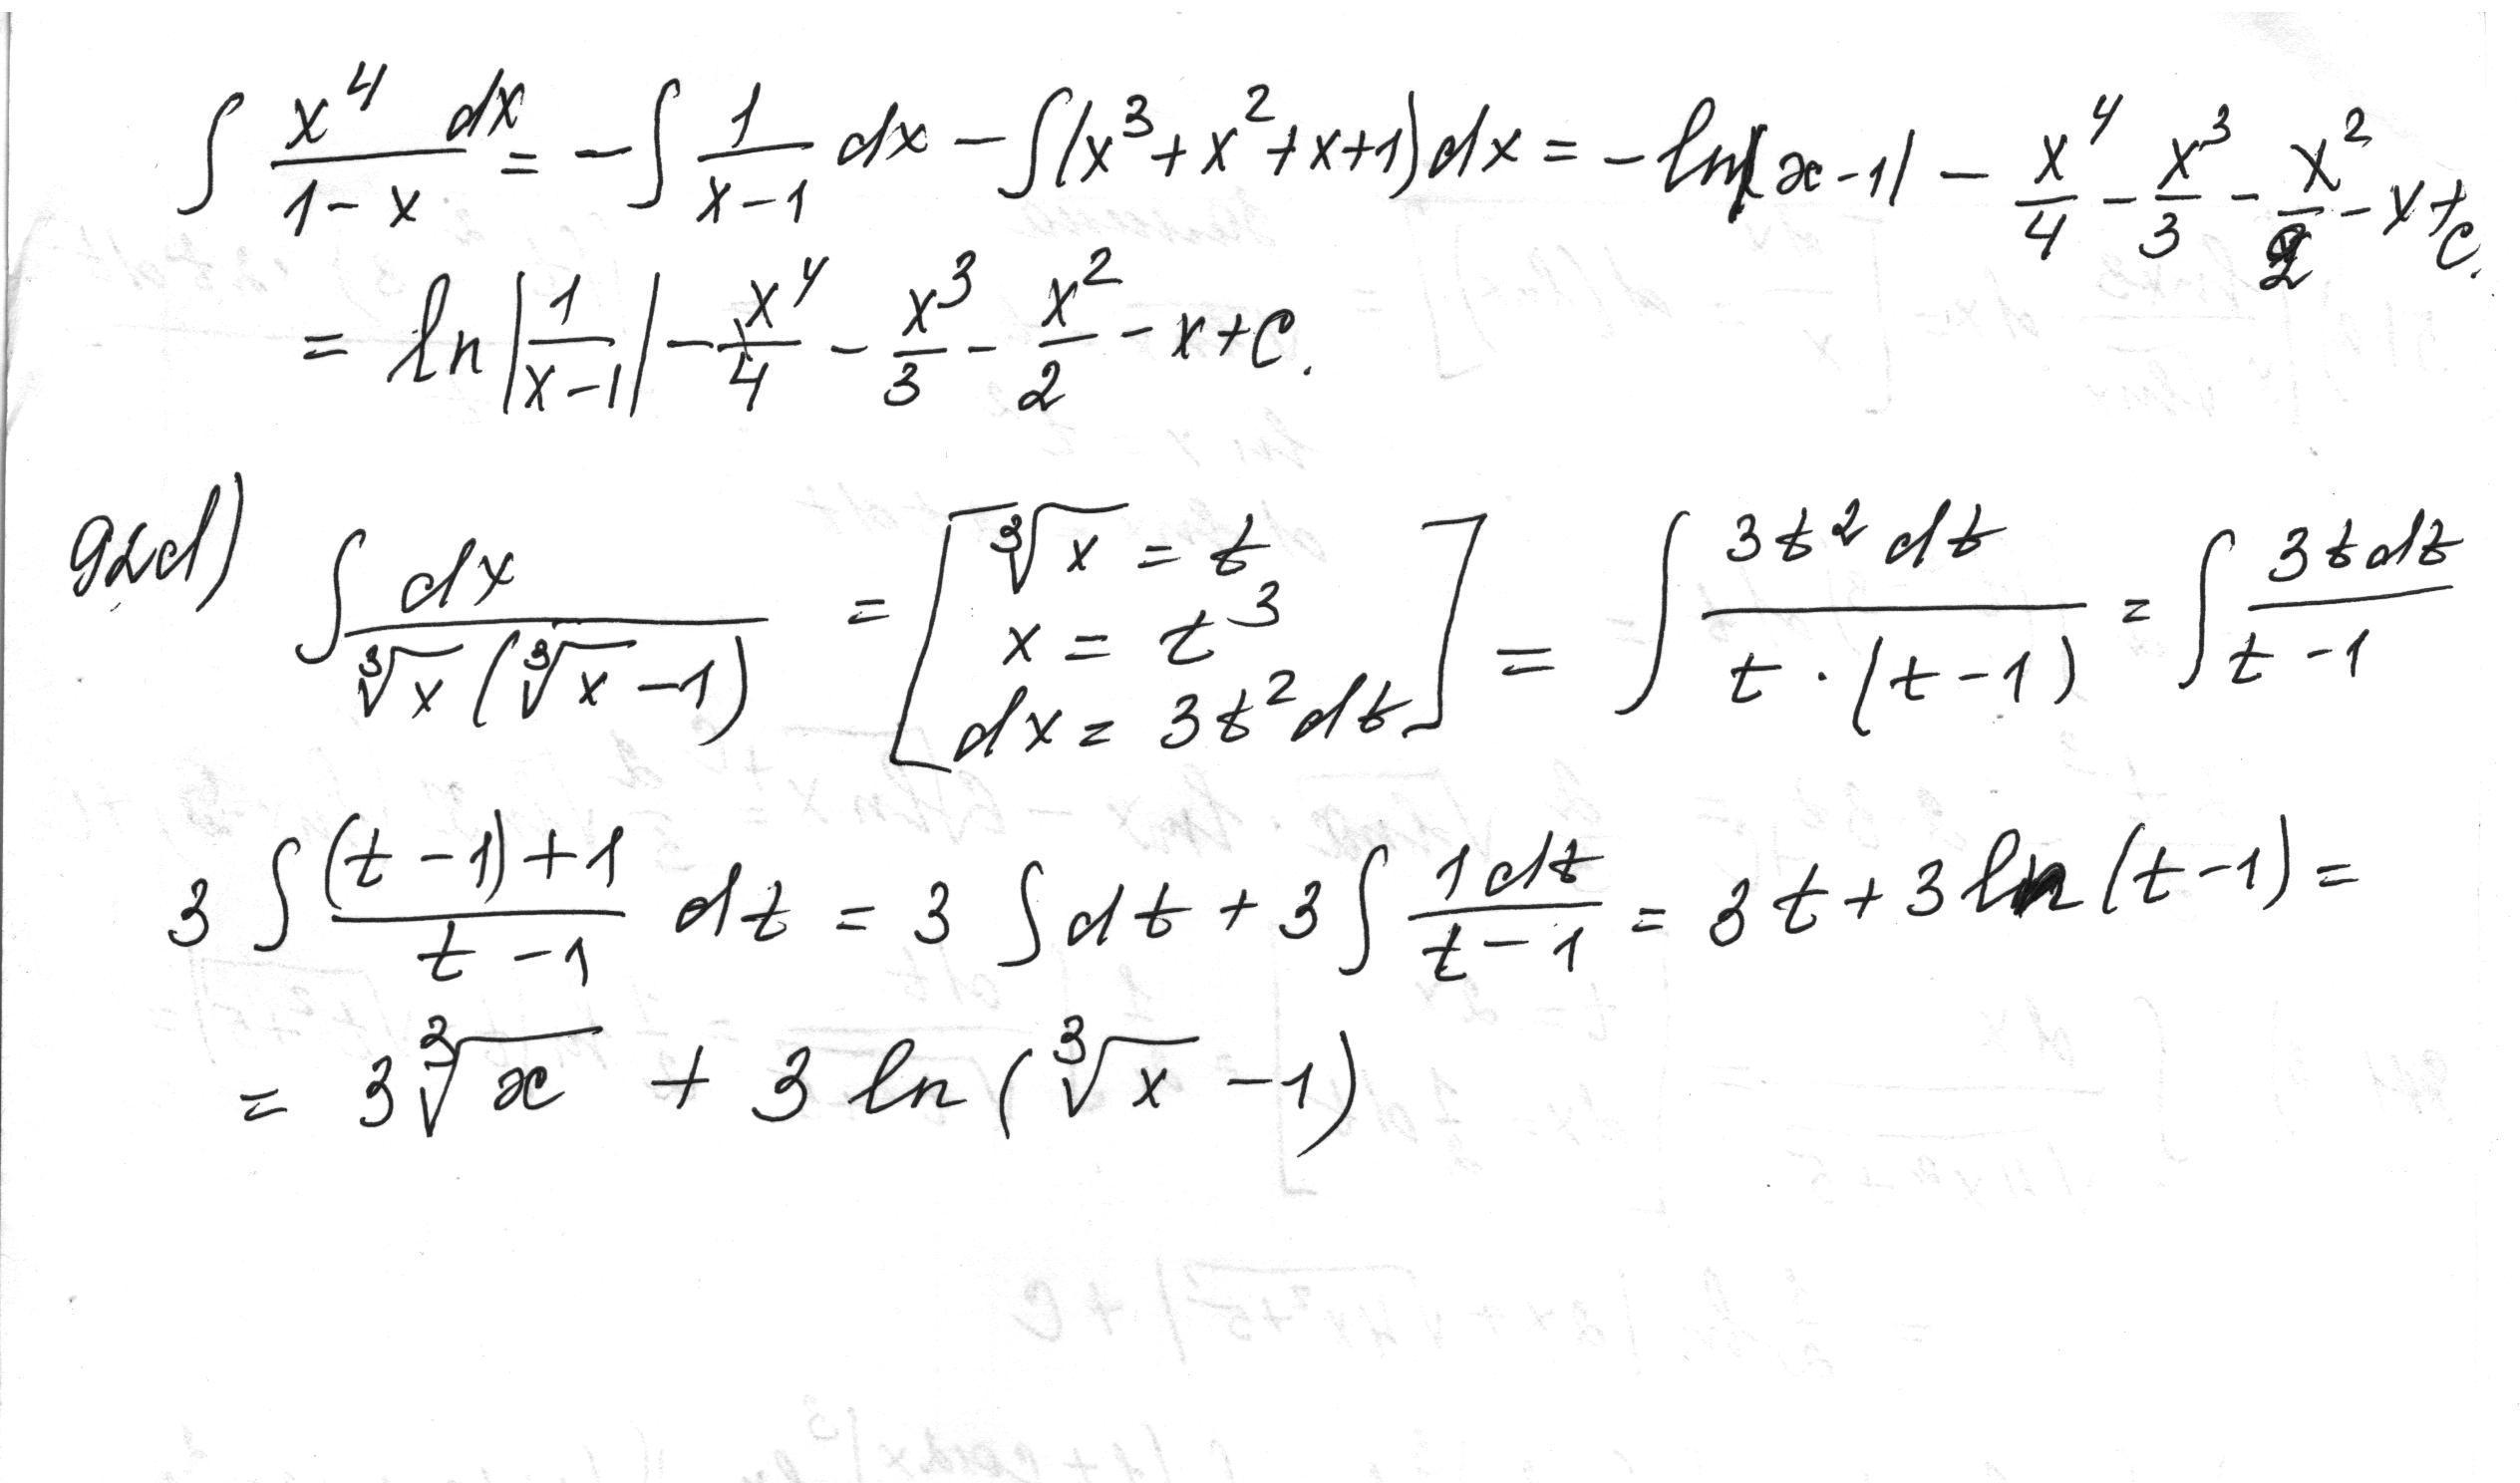 ∫ x⁴ dx / (1 - x) = - ∫ 1/(x-1) dx - ∫(x³ + x² + x + 1) dx = - ln|x-1| - x⁴/4 - x³/3 - x²/2 - x + C.
= ln |1/(x-1)| - x⁴/4 - x³/3 - x²/2 - x + C.
∫ dx / (∛x (∛x - 1)) = [ ∛x = t
x = t³
dx = 3t² dt ] = ∫ 3t² dt / (t · (t - 1)) = ∫ 3t dt / (t - 1)
3 ∫ ((t - 1) + 1) / (t - 1) dt = 3 ∫ dt + 3 ∫ 1 dt / (t - 1) = 3t + 3 ln (t - 1) =
= 3 ∛x + 3 ln (∛x - 1)